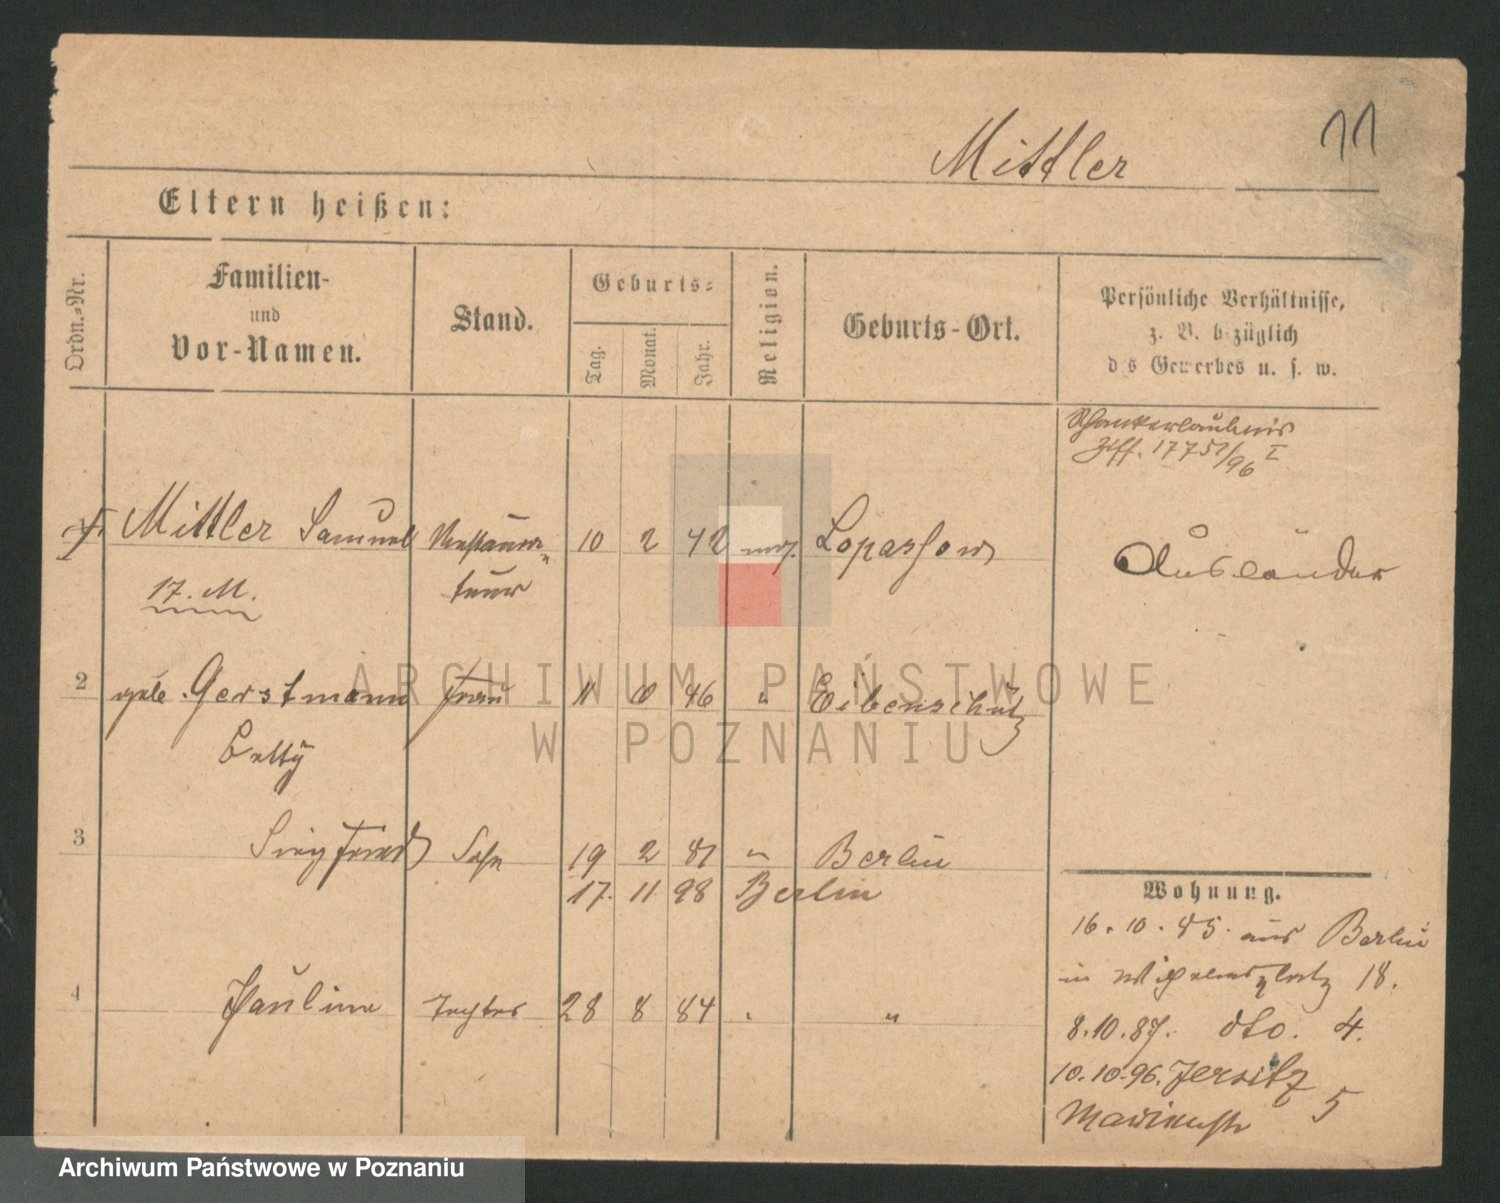 11
Mittler
Eltern heißen:
Ordn.-Nr.
Familien-
und
Vor-Namen.
Stand.
Geburts-
Tag.
Monat.
Jahr.
Religion.
Geburts-Ort.
Persönliche Verhältnisse,
z. B. bezüglich
des Gewerbes u. s. w.
Schankerlaubnis
1775/96 I
1 Mittler Samuel Restaura- 10 2 42 mos. Lopaschow Ausländer
17. M. teur
2 geb. Gerstmann Frau 11 10 46 " Eibenschütz
Betty
3 Siegfried Sohn 19 2 81 " Berlin
17. 11. 98 Berlin
4 Pauline Tochter 28 8 84 " "
Wohnung.
16. 10. 85. aus Berlin
in Wilhelmsplatz 18.
8. 10. 87. dto. 4.
10. 10. 96. Jersitz
Marienstr 5
ARCHIWUM PAŃSTWOWE
W POZNANIU
Archiwum Państwowe w Poznaniu